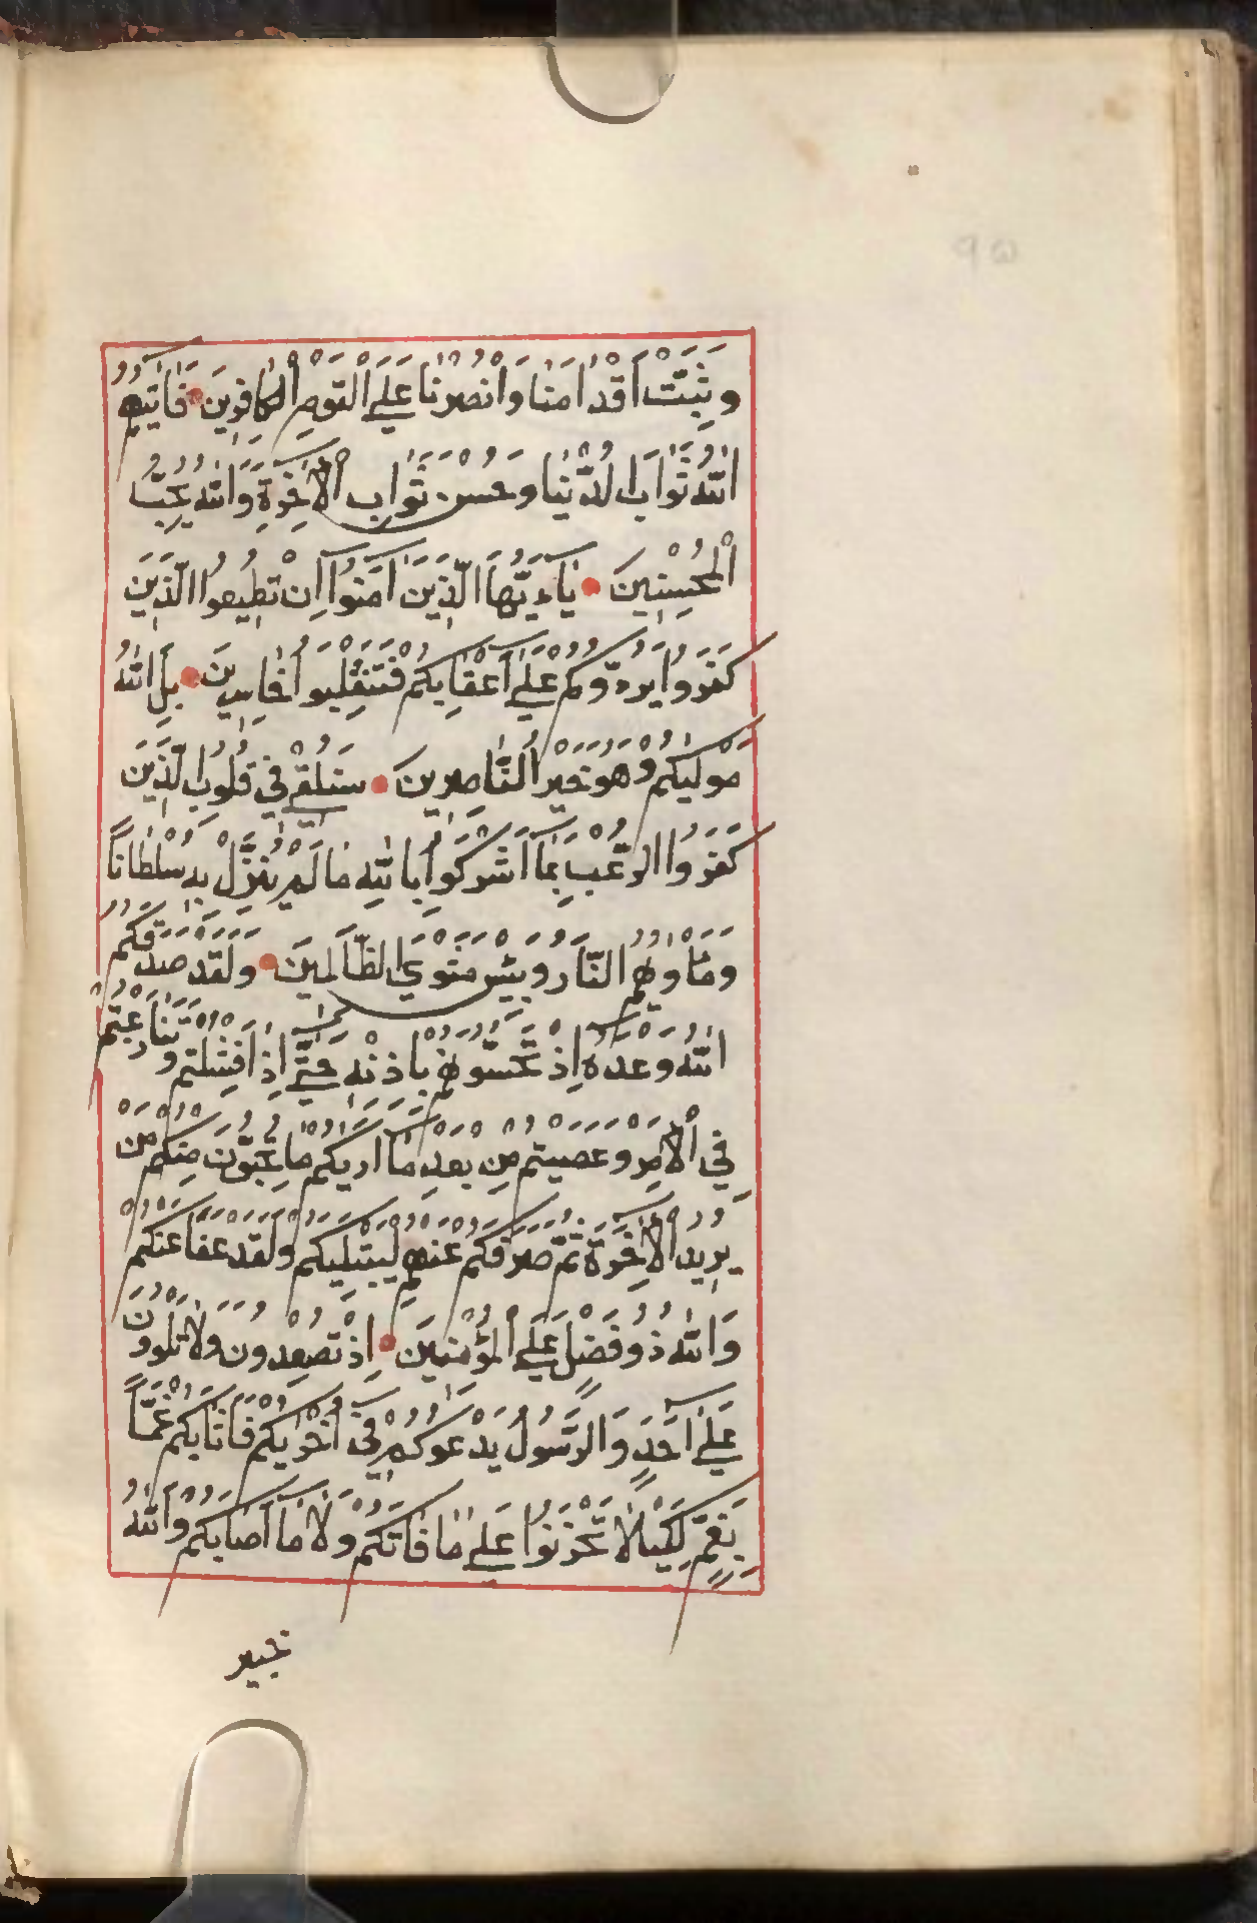 وَثَبِّتْ أَقْدَامَنَا وَانْصُرْنَا عَلَى الْقَوْمِ الْكَافِرِينَ فَآتٰيهُمُ
اللّٰهُ ثَوَابَ الدُّنْيَا وَحُسْنَ ثَوَابِ الْاٰخِرَةِ وَاللّٰهُ يُحِبُّ
الْمُحْسِنِينَ يَآءَيُّهَا الَّذِينَ اٰمَنُوا اِنْ تُطِيعُوا الَّذِينَ
كَفَرُوا يَرُدُّوكُمْ عَلَى أَعْقَابِكُمْ فَتَنْقَلِبُوا خَاسِرِينَ بَلِ اللّٰهُ
مَوْلٰيكُمْ وَهُوَ خَيْرُ النَّاصِرِينَ سَنُلْقِي فِي قُلُوبِ الَّذِينَ
كَفَرُوا الرُّعْبَ بِمَا اَشْرَكُوا بِاللّٰهِ مَا لَمْ يُنَزِّلْ بِهِ سُلْطَانًا
وَمَأْوٰيهُمُ النَّارُ وَبِئْسَ مَثْوَي الظَّالِمِينَ وَلَقَدْ صَدَقَكُمُ
اللّٰهُ وَعْدَهُ اِذْ تَحُسُّونَهُمْ بِاِذْنِهِ حَتَّى اِذَا فَشِلْتُمْ وَتَنَازَعْتُمْ
فِي الْاَمْرِ وَعَصَيْتُمْ مِنْ بَعْدِ مَا اَرٰيكُمْ مَا تُحِبُّونَ مِنْكُمْ مَنْ
يُرِيدُ الْاٰخِرَةَ ثُمَّ صَرَفَكُمْ عَنْهُمْ لِيَبْتَلِيَكُمْ وَلَقَدْ عَفَا عَنْكُمْ
وَاللّٰهُ ذُو فَضْلٍ عَلَى الْمُؤْمِنِينَ اِذْ تُصْعِدُونَ وَلَا تَلْوُونَ
عَلَى اَحَدٍ وَالرَّسُولُ يَدْعُوكُمْ فِي اُخْرٰيكُمْ فَاَثَابَكُمْ غَمًّا
بِغَمٍّ لِكَيْلَا تَحْزَنُوا عَلَى مَا فَاتَكُمْ وَلَا مَا اَصَابَكُمْ وَاللّٰهُ
خبير